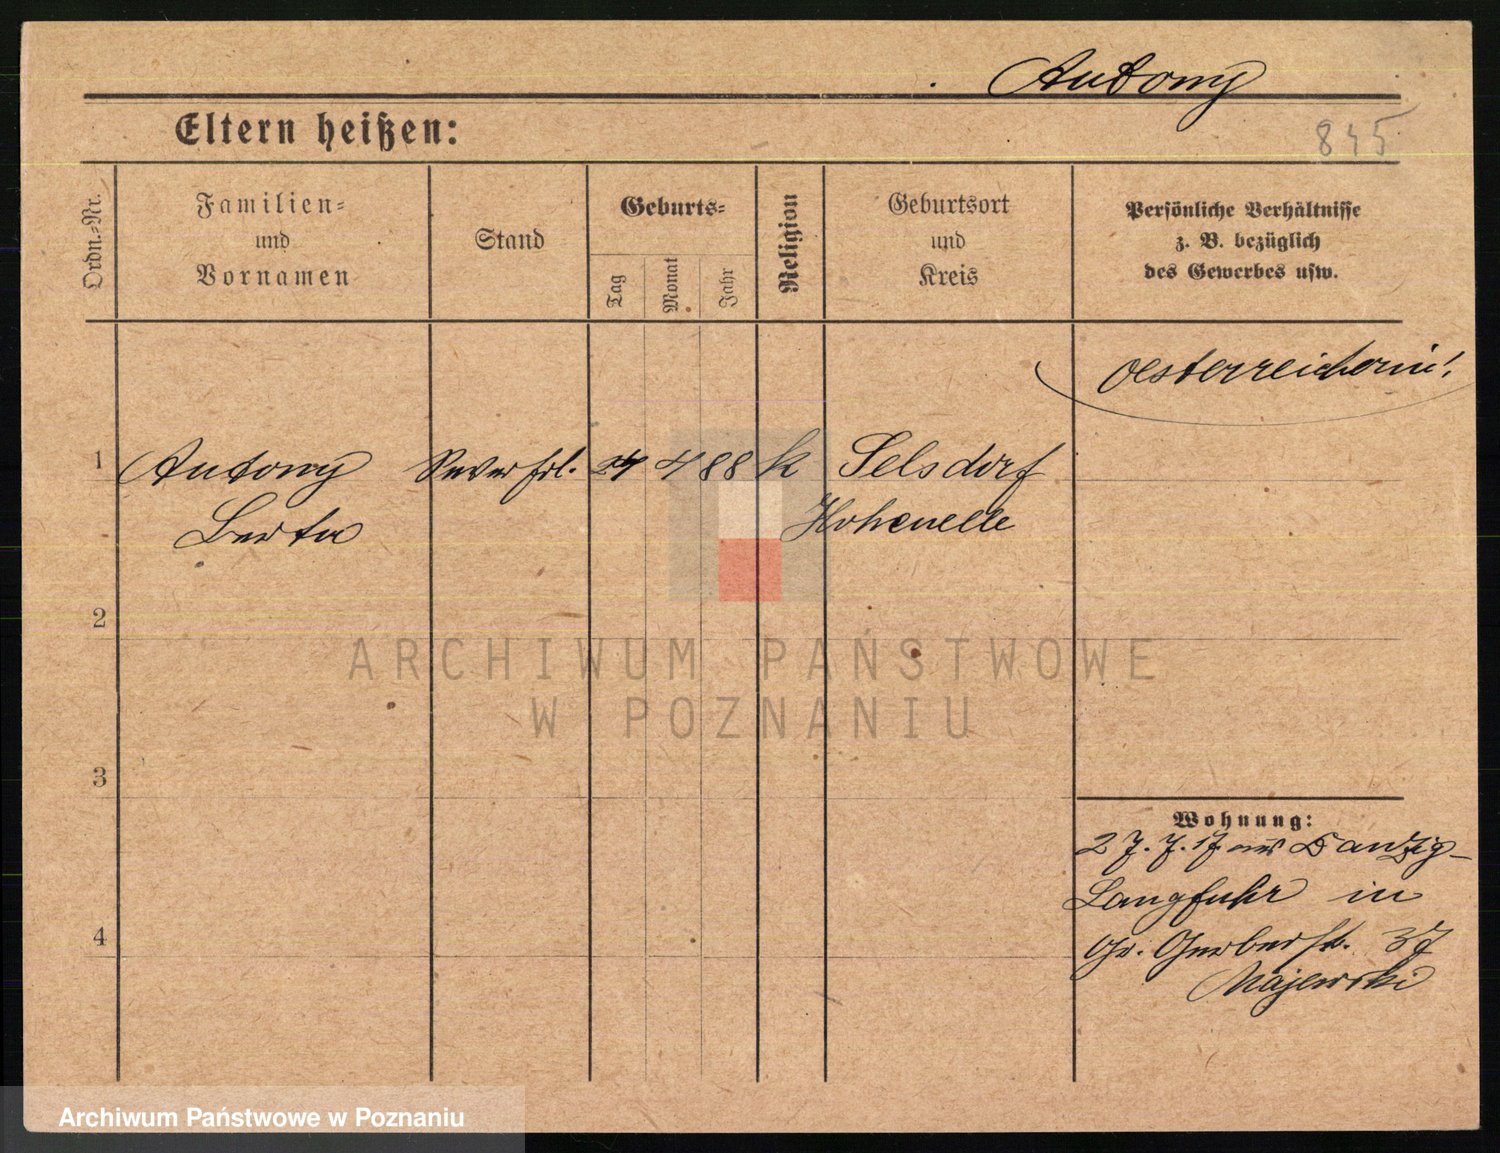 Antony
Eltern heißen:
845
Ordn.-Nr.
Familien-
und
Vornamen
Stand
Geburts-
Tag
Monat
Jahr
Religion
Geburtsort
und
Kreis
Persönliche Verhältnisse
z. B. bezüglich
des Gewerbes usw.
Oesterreicherin!
1 Antony 4 88 k Selsdorf
Berta
2
ARCHIWUM PAŃSTWOWE
W POZNANIU
3
Wohnung:
27.7.17 aus Danzig-
Langfuhr in
4
Gr. Gerberst. 37
Majewski
Archiwum Państwowe w Poznaniu